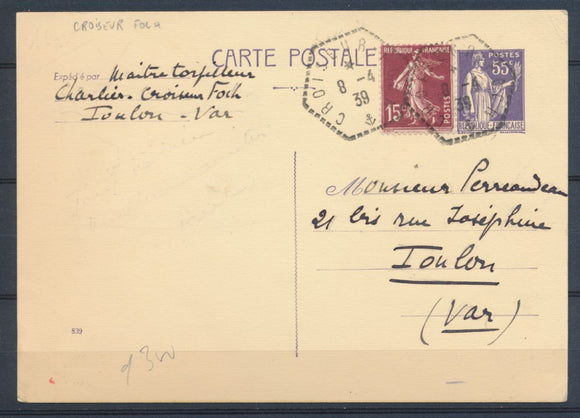 CROISEUR FOCH
CARTE POSTALE
Expédié par
Maître torpilleur
Charlier - Croiseur Foch
Toulon - Var
CROISEUR
8 -4
39
REPUBLIQUE FRANÇAISE
15c
POSTES
POSTES
55c
REPUBLIQUE FRANÇAISE
Monsieur Perreandeau
21 bis rue Joséphine
Toulon
(Var)
839